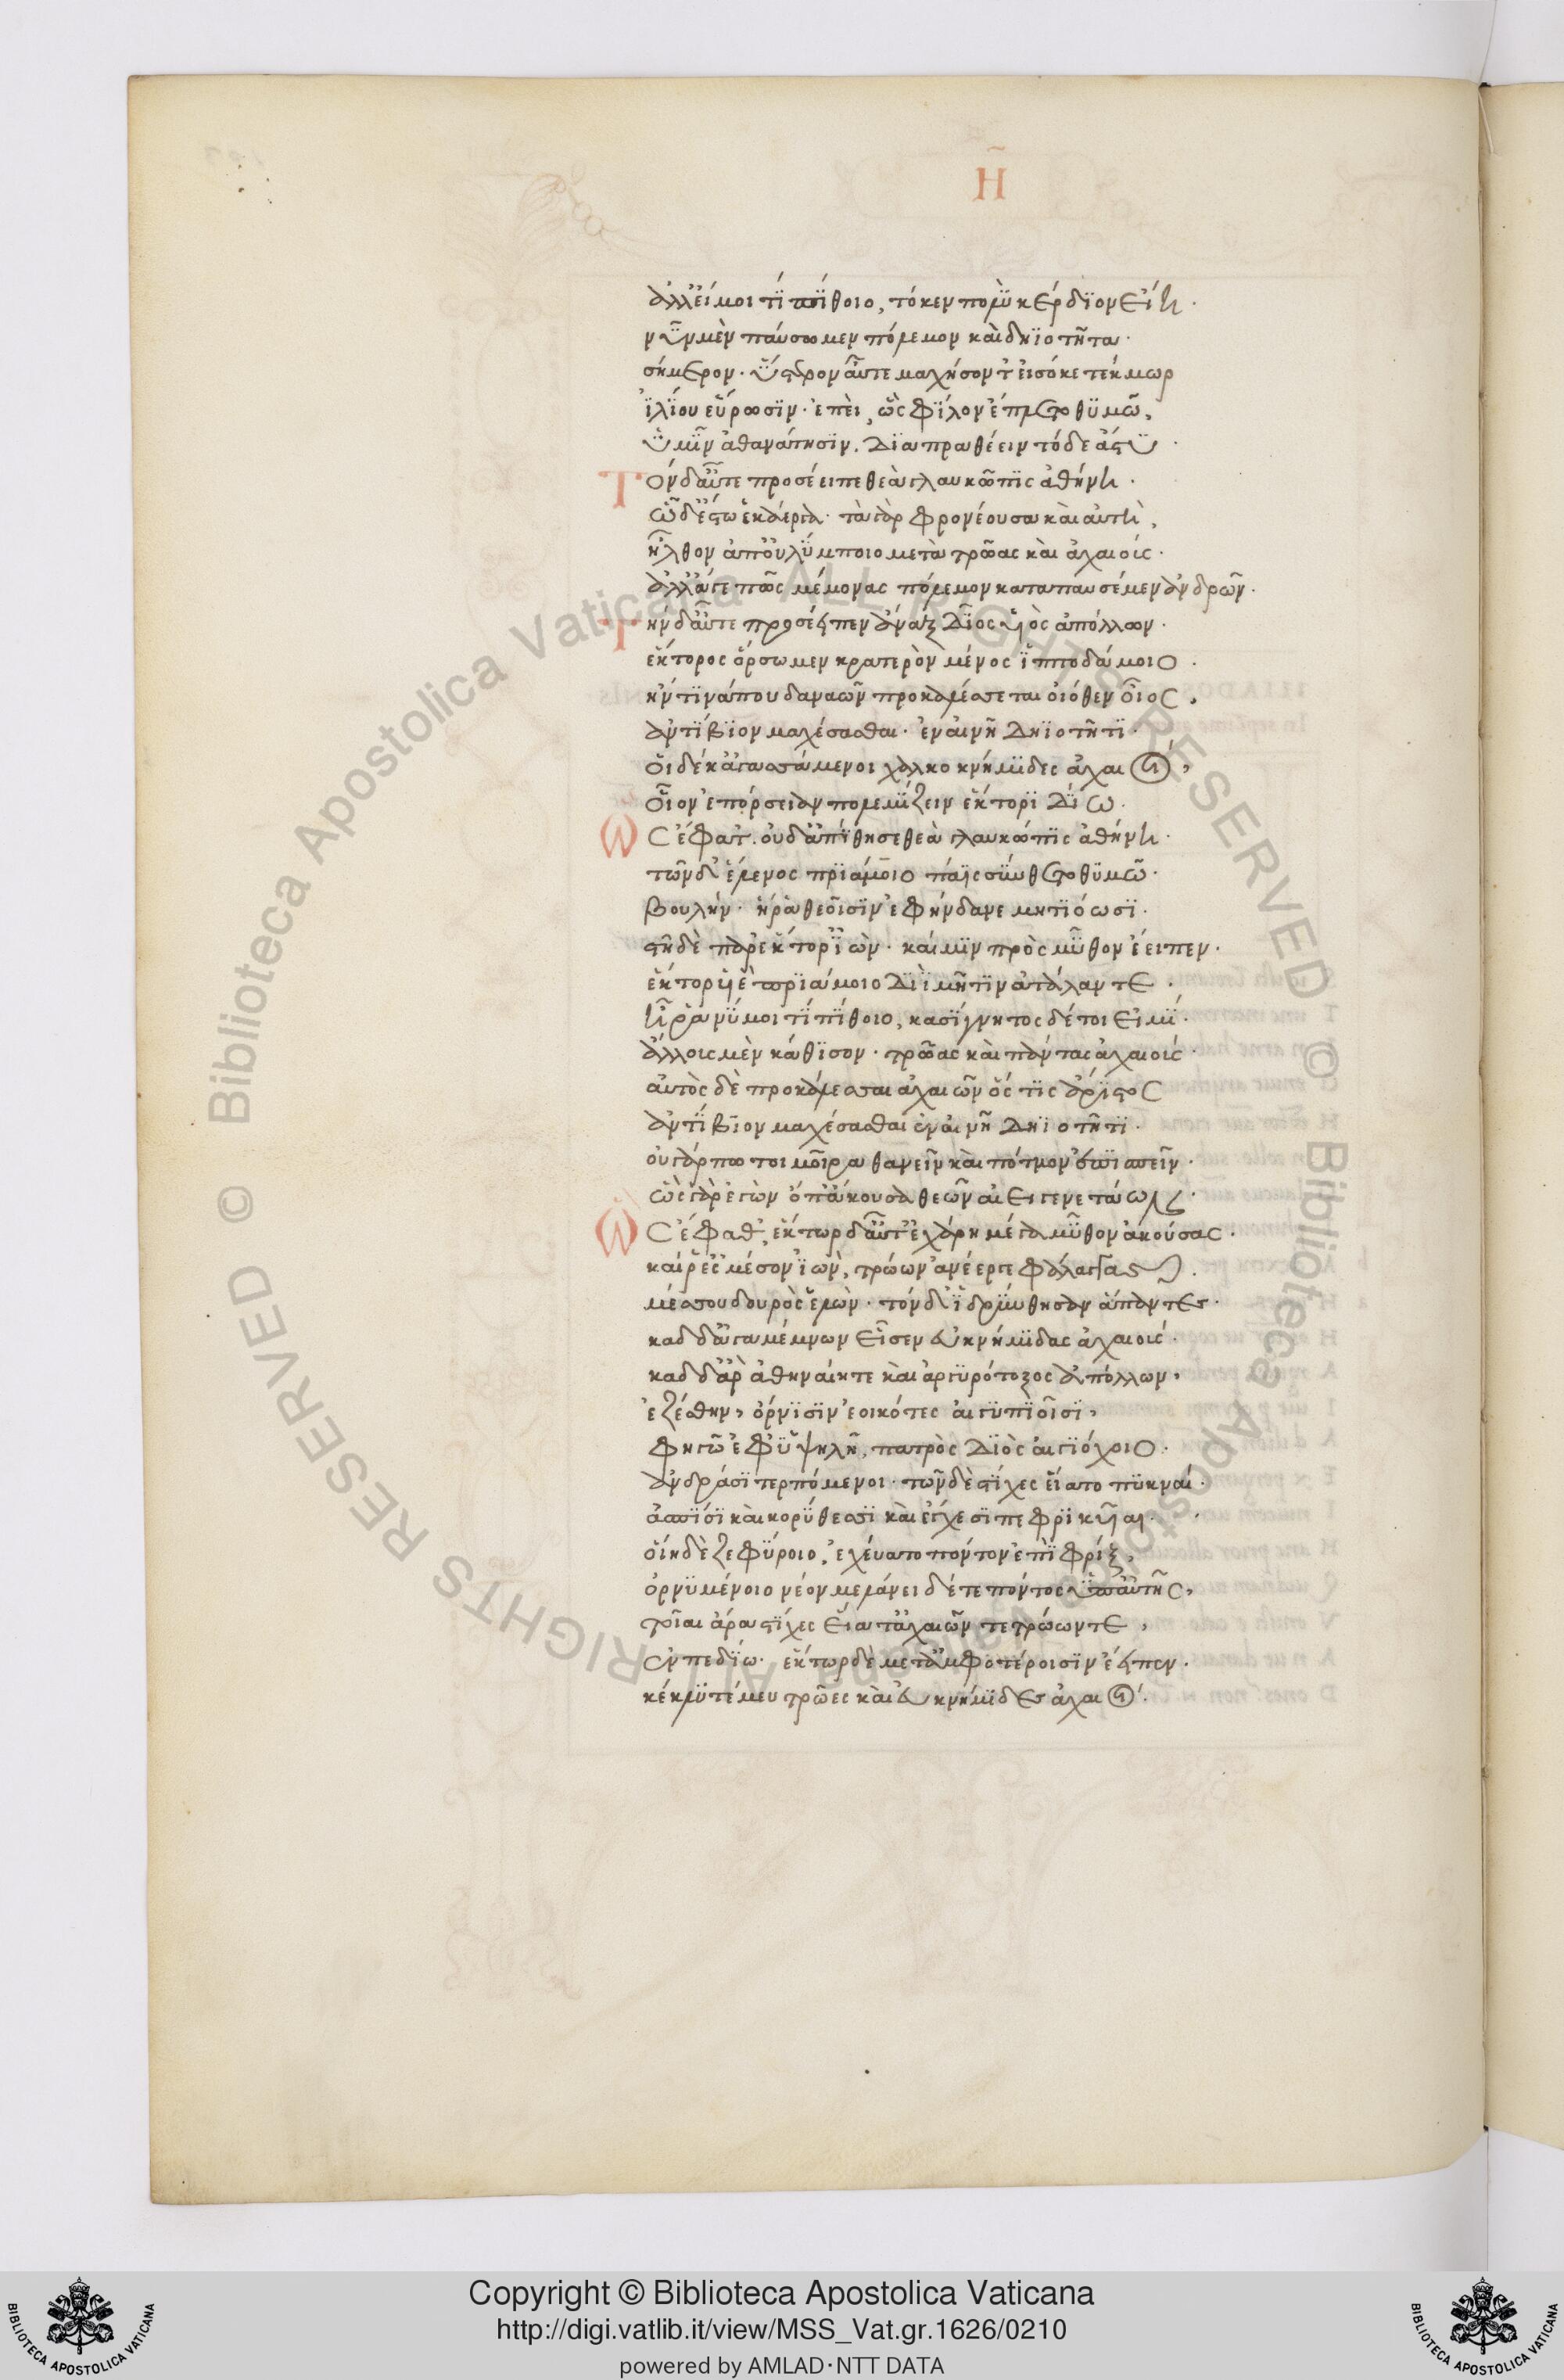 Η̃
ἀλλ' εἴ μοί τι πίθοιο, τό κεν πολὺ κέρδιον εἴη·
νῦν μὲν παύσωμεν πόλεμον καὶ δηϊοτῆτα·
σήμερον· ὕστερον αὖτε μαχήσοντ' εἰσόκε τέκμωρ
ἰλίου εὕρωσιν· ἐπεὶ, ὣς φίλον ἔπλετο θυμῶ,
ὑμῖν ἀθανάτησιν. διαπραθέειν τόδε ἄστυ·
Τὸν δ' αὖτε προσέειπε θεὰ γλαυκῶπις ἀθήνη·
ὧδ' ἔστω ἑκάεργε· τὰ γὰρ φρονέουσα καὶ αὐτὴ,
ἦλθον ἀπ' οὐλύμποιο μετὰ τρῶας καὶ ἀχαιούς·
ἀλλ' ἄγε πῶς μέμονας πόλεμον καταπαυσέμεν ἀνδρῶν·
Τὴν δ' αὖτε προσέειπεν ἄναξ διὸς υἱὸς ἀπόλλων·
ἕκτορος ὄρσωμεν κρατερὸν μένος ἱπποδάμοιο·
ἤν τινά που δαναῶν προκαλέσεται οἰόθεν οἶος,
ἀντίβιον μαχέσασθαι· ἐν αἰνῆ δηϊοτῆτι·
οἱ δέ κ' ἀγασσάμενοι χαλκοκνήμιδες ἀχαιοί,
οἶον ἐπόρσειαν πολεμίζειν ἕκτορι δίω.
Ὣς ἔφατ'. οὐδ' ἀπίθησε θεὰ γλαυκώπις ἀθήνη·
τῶν δ' ἕλενος πριάμοιο πάϊς σύνθετο θυμῶ·
βουλήν· ἥ ῥα θεοῖσιν ἐφήνδανε μητιόωσι·
στῆ δὲ παρ' ἕκτορ' ἰών· καί μιν πρὸς μῦθον ἔειπεν·
ἕκτορ υἱὲ πριάμοιο διῒ μῆτιν ἀτάλαντε·
ἦ ῥά νύ μοί τι πίθοιο, κασίγνητος δέ τοι εἰμί·
ἄλλους μὲν κάθισον· τρῶας καὶ πάντας ἀχαιούς·
αὐτὸς δὲ προκάλεσσαι ἀχαιῶν ὅς τις ἄριστος
ἀντίβιον μαχέσασθαι ἐν αἰνῆ δηϊοτῆτι·
οὐ γάρ πω τοι μοῖρα θανεῖν καὶ πότμον ἐπισπεῖν·
ὣς γὰρ ἐγὼν ὄπ' ἄκουσα θεῶν αἰειγενετάων·
Ὣς ἔφαθ', ἕκτωρ δ' αὖτ' ἐχάρη μέγα μῦθον ἀκούσας·
καί ῥ' ἐς μέσον ἰὼν, τρώων ἀνέεργε φάλαγγας.
μέσσου δουρὸς ἑλὼν· τοὶ δ' ἱδρύνθησαν ἅπαντες·
καδ δ' ἀγαμέμνων εἷσεν ἐϋκνήμιδας ἀχαιούς·
καδ δ' ἄρ' ἀθηναίη τε καὶ ἀργυρότοξος ἀπόλλων,
ἑζέσθην, ὄρνισιν ἐοικότες αἰγυπιοῖσι,
φηγῶ ἐφ' ὑψηλῆ, πατρὸς διὸς αἰγιόχοιο·
ἀνδράσι τερπόμενοι· τῶν δὲ στίχες εἵατο πυκναί·
ἀσπίσι καὶ κορύθεσσι καὶ ἔγχεσι πεφρικυῖαι·
οἵη δὲ ζεφύροιο, ἐχεύατο πόντον ἐπὶ φρίξ,
ὀρνυμένοιο νέον μελάνει δέ τε πόντος ὑπ' αὐτῆς,
τοῖαι ἄρα στίχες εἵατ' ἀχαιῶν τε τρώων τε,
ἐν πεδίω· ἕκτωρ δὲ μετ' ἀμφοτέροισιν ἔειπεν·
κέκλυτέ μευ τρῶες καὶ ἐϋκνήμιδες ἀχαιοί·
Copyright © Biblioteca Apostolica Vaticana
http://digi.vatlib.it/view/MSS_Vat.gr.1626/0210
powered by AMLAD·NTT DATA